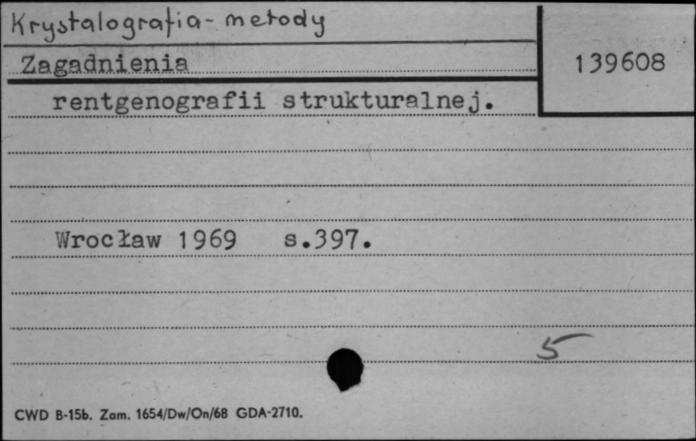 Krystalografia - metody
Zagadnienia
139608
rentgenografii strukturalnej.
Wrocław 1969 s.397.
5
CWD B-15b. Zam. 1654/Dw/On/68 GDA-2710.